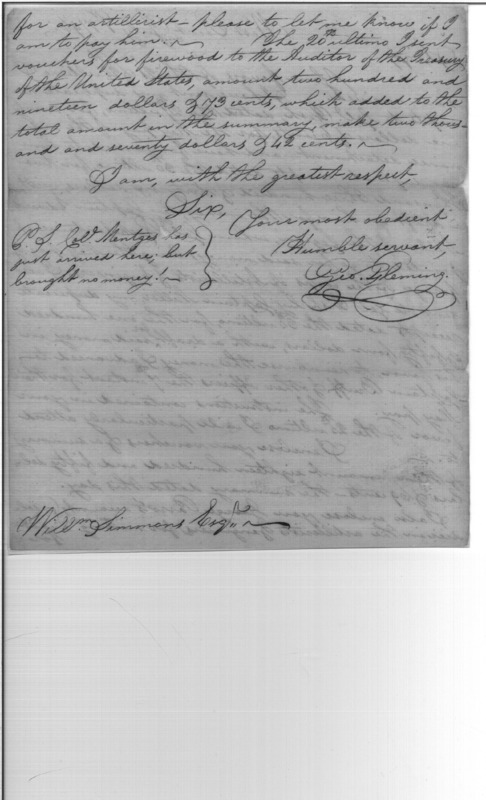 for an artillerist – please to let me know if I
am to pay him. ~ The 20th ultimo I sent
vouchers for firewood to the Auditor of the Treasury
of the United States, amount two hundred and
nineteen dollars & 73 cents, which added to the
total amount in the summary, make two thous-
and and seventy dollars & 42 cents. ~
I am, with the greatest respect,
Sir,
Your most obedient
Humble servant,
Geo. Fleming
P.S. Colo. Mentges has
just arrived here, but
brought no money! ~
Willm Simmons Esqr. ~